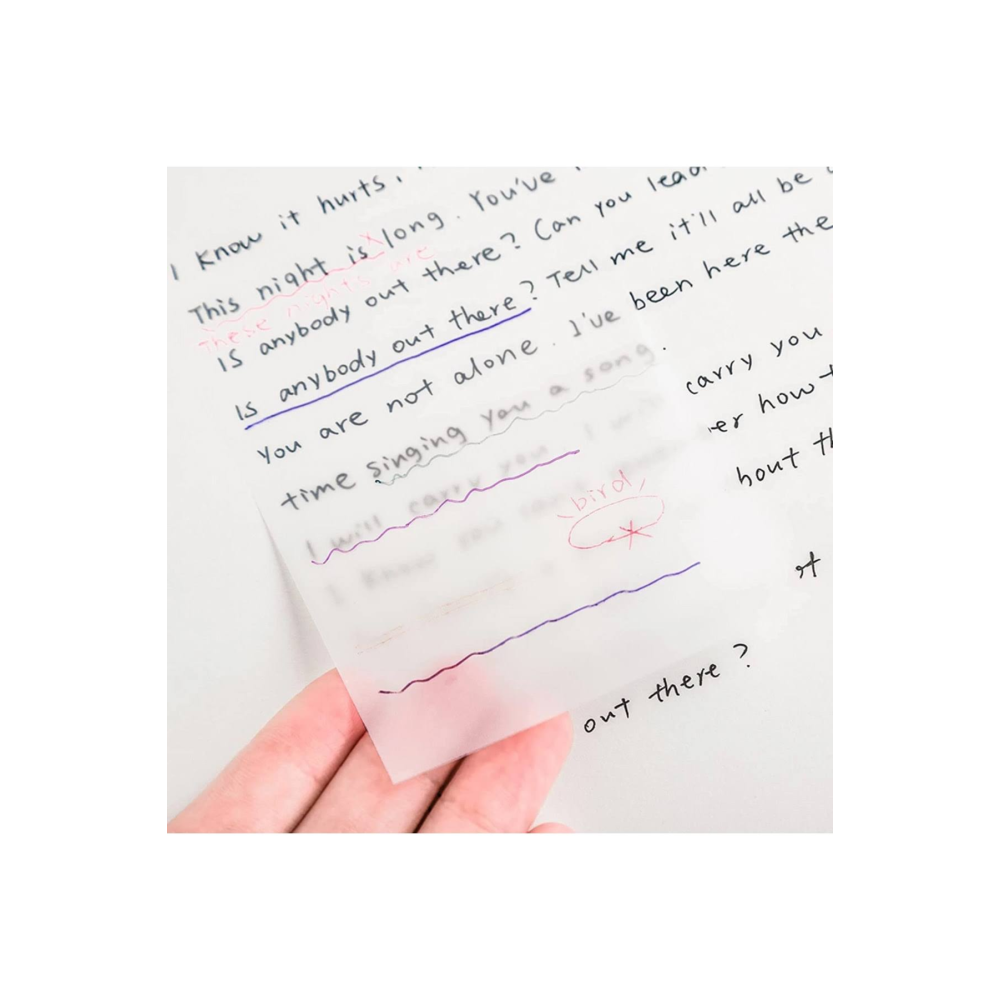 I know it hurts,
This night is long. You've
These nights are
Is anybody out there? Can you lead
Is anybody out there? Tell me it'll all be
You are not alone. I've been here the
time singing you a song.
I will carry you I will carry you
bird
I know you how
bout
out there?